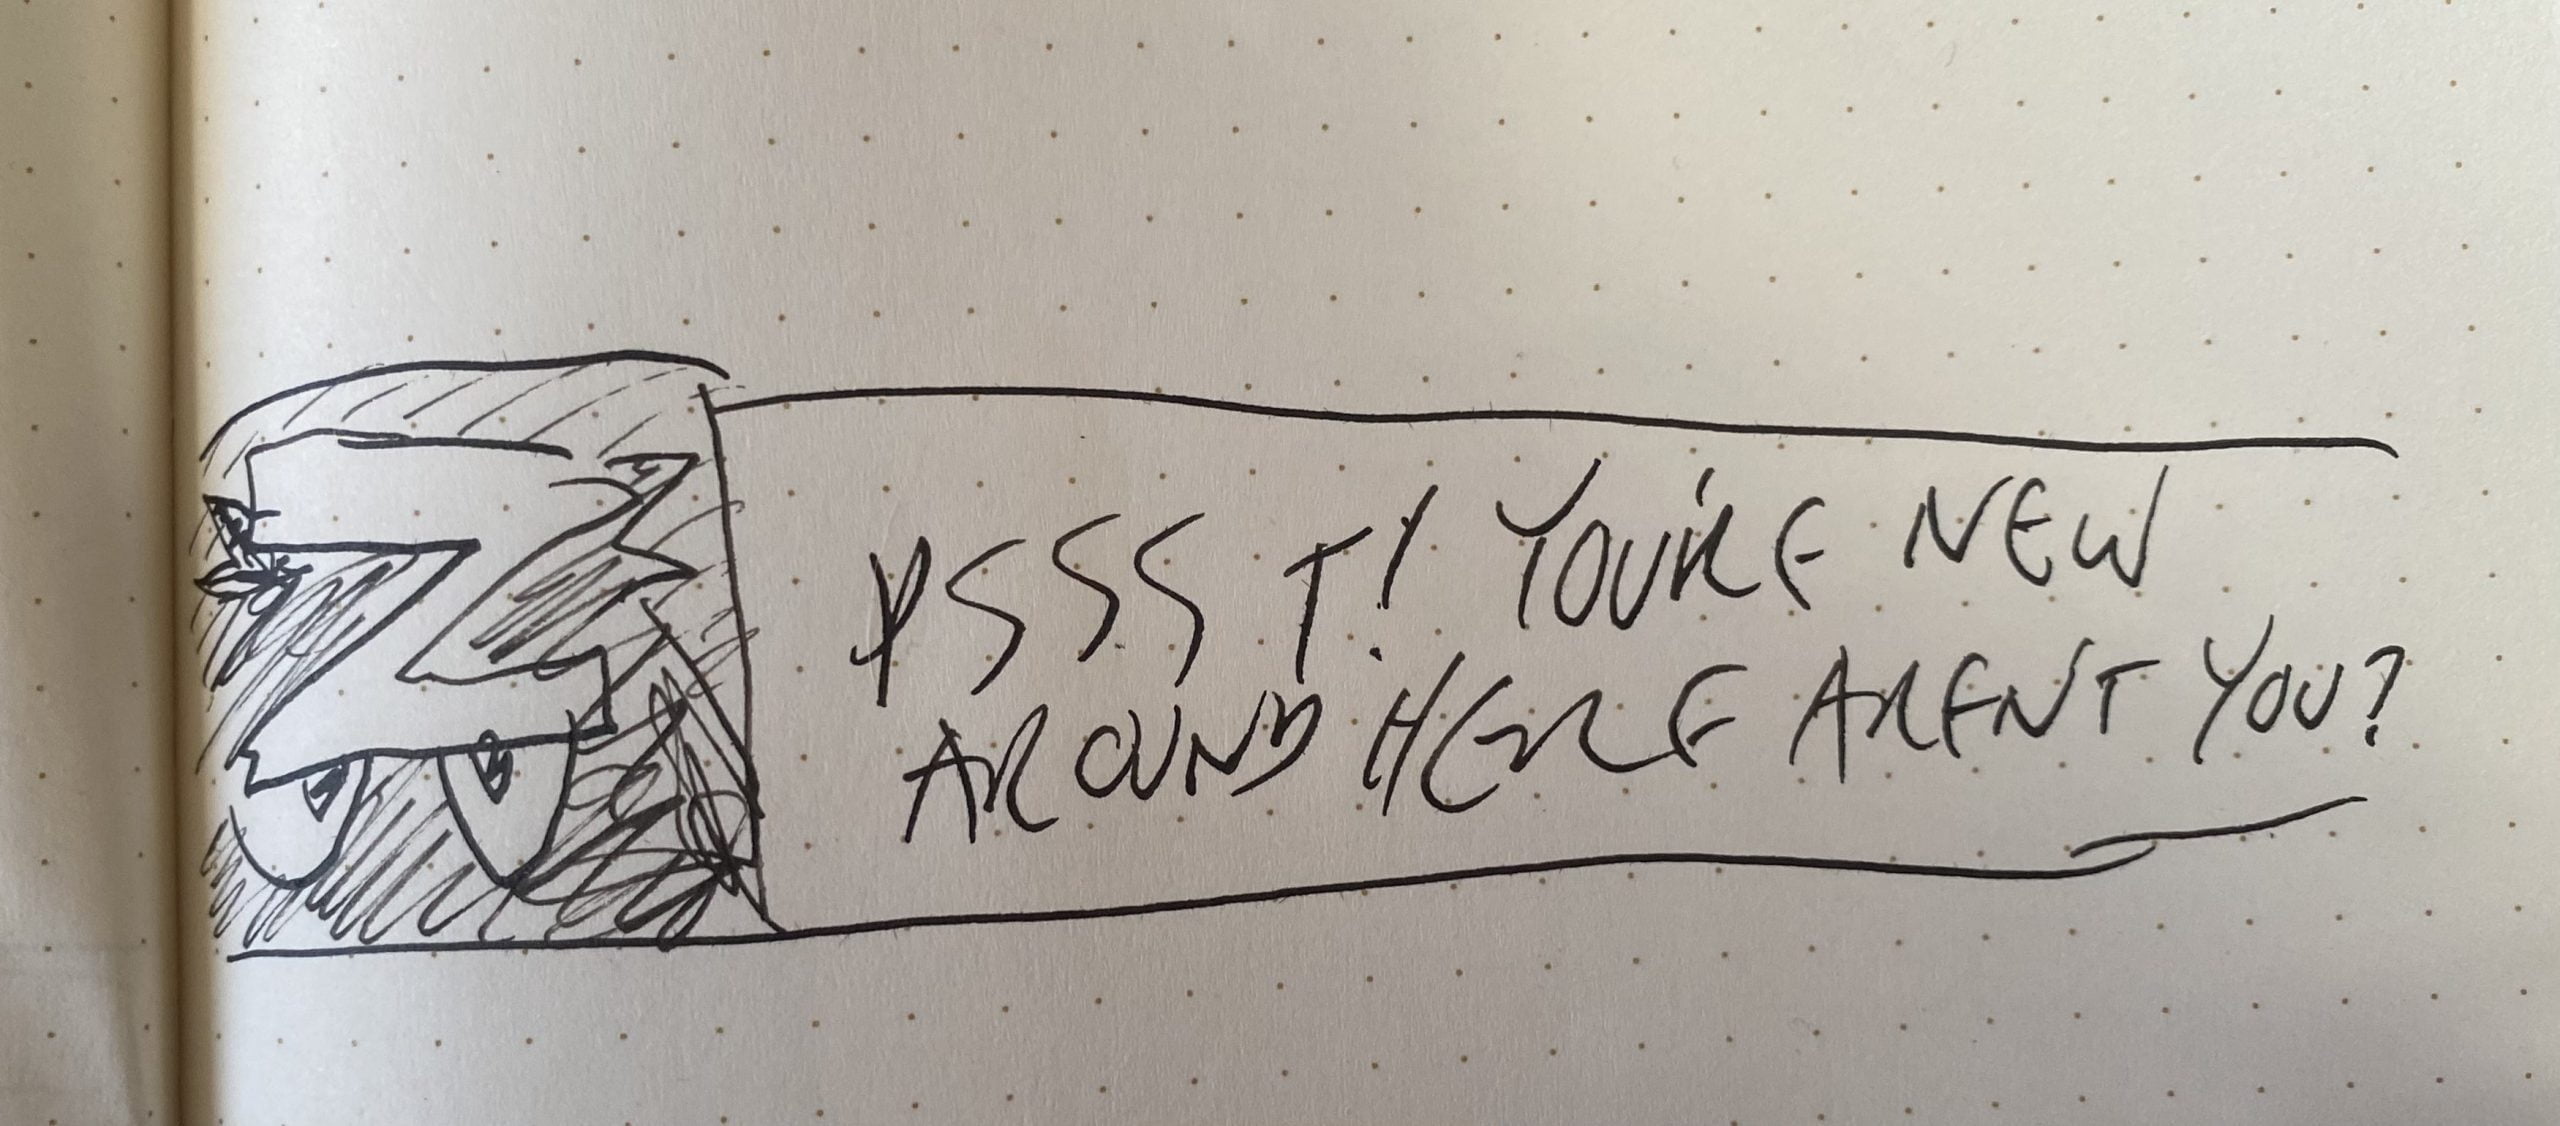 PSSST! YOU'RE NEW
AROUND HERE ARENT YOU?